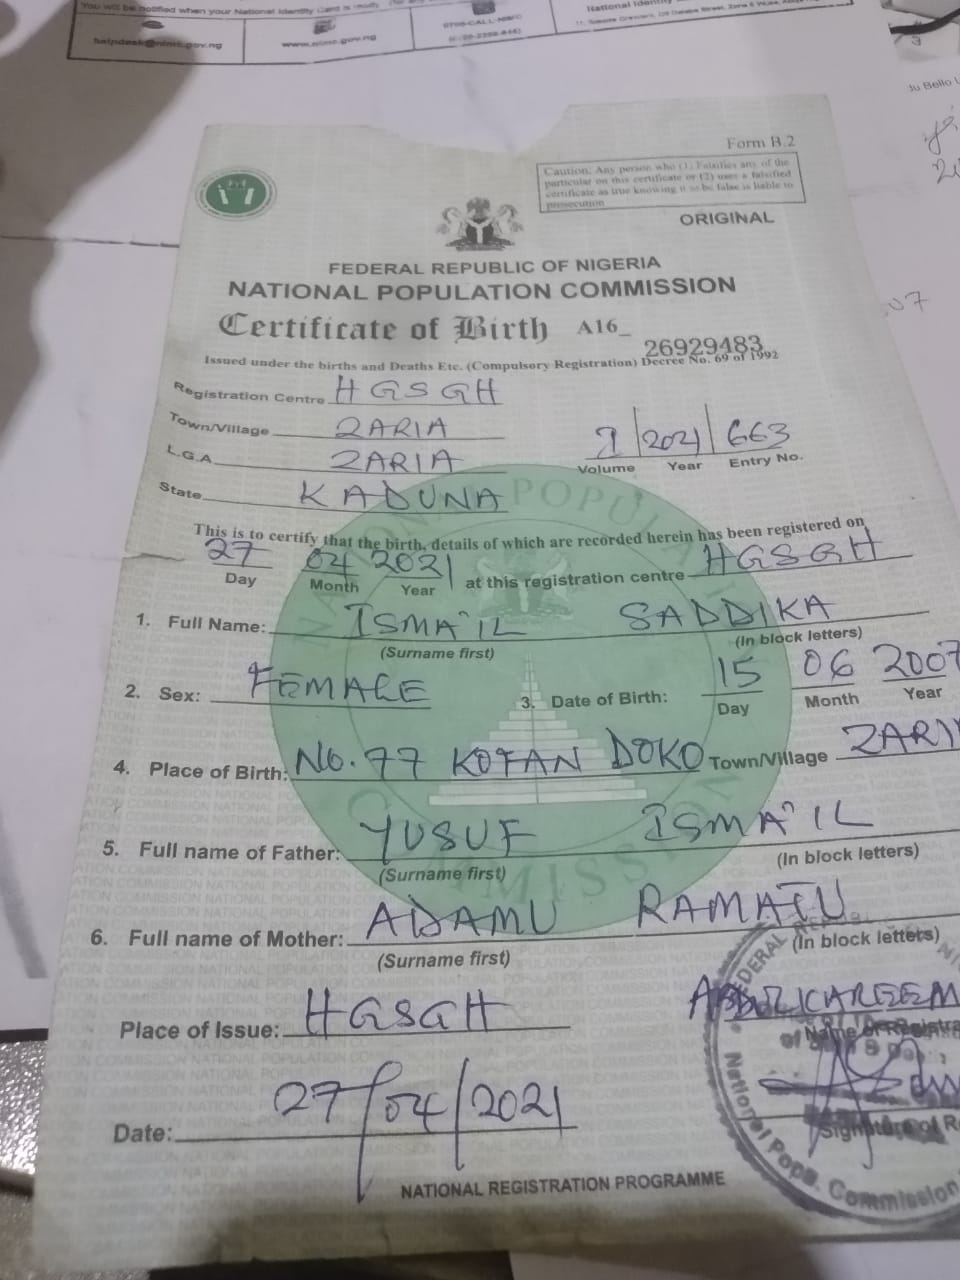 You will be notified when your National Identity Card is ready.
National Identity
helpdesk@nimc.gov.ng
www.nimc.gov.ng
0700-CALL-NIMC
Form B.2
Caution: Any person who (1) Falsifies any of the
particular on this certificate or (2) uses a falsified
certificate as true knowing it to be false is liable to
prosecution
ORIGINAL
FEDERAL REPUBLIC OF NIGERIA
NATIONAL POPULATION COMMISSION
Certificate of Birth A16_
26929483
Issued under the births and Deaths Etc. (Compulsory Registration) Decree No. 69 of 1992
Registration Centre HGSGH
Town/Village ZARIA
L.G.A. ZARIA
2021 663
Volume Year Entry No.
State KADUNA
This is to certify that the birth, details of which are recorded herein has been registered on
27 04 2021 at this registration centre HGSGH
Day Month Year
1. Full Name: ISMA'IL SADDIKA
(Surname first) (In block letters)
2. Sex: FEMALE 3. Date of Birth: 15 06 2007
Day Month Year
4. Place of Birth: No. 77 KOFAN DOKO Town/Village
5. Full name of Father: YUSUF ISMA'IL
(Surname first) (In block letters)
6. Full name of Mother: ADAMU RAMATU
(Surname first) (In block letters)
Place of Issue: HGSGH
Date: 27/04/2021
NATIONAL REGISTRATION PROGRAMME
National Popu. Commission